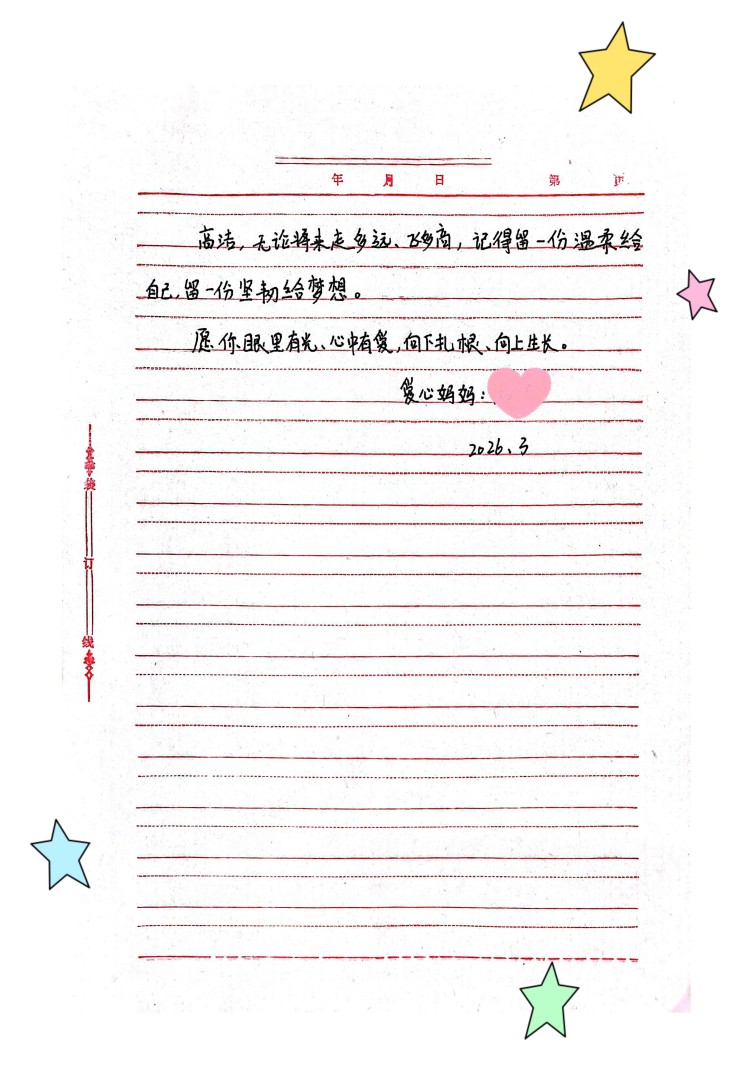 年 月 日 第 页
高洁，无论将来走多远、飞多高，记得留一份温柔给
自己，留一份坚韧给梦想。
愿你眼里有光、心中有爱，向下扎根、向上生长。
爱心妈妈：
2026、3
装
订
线